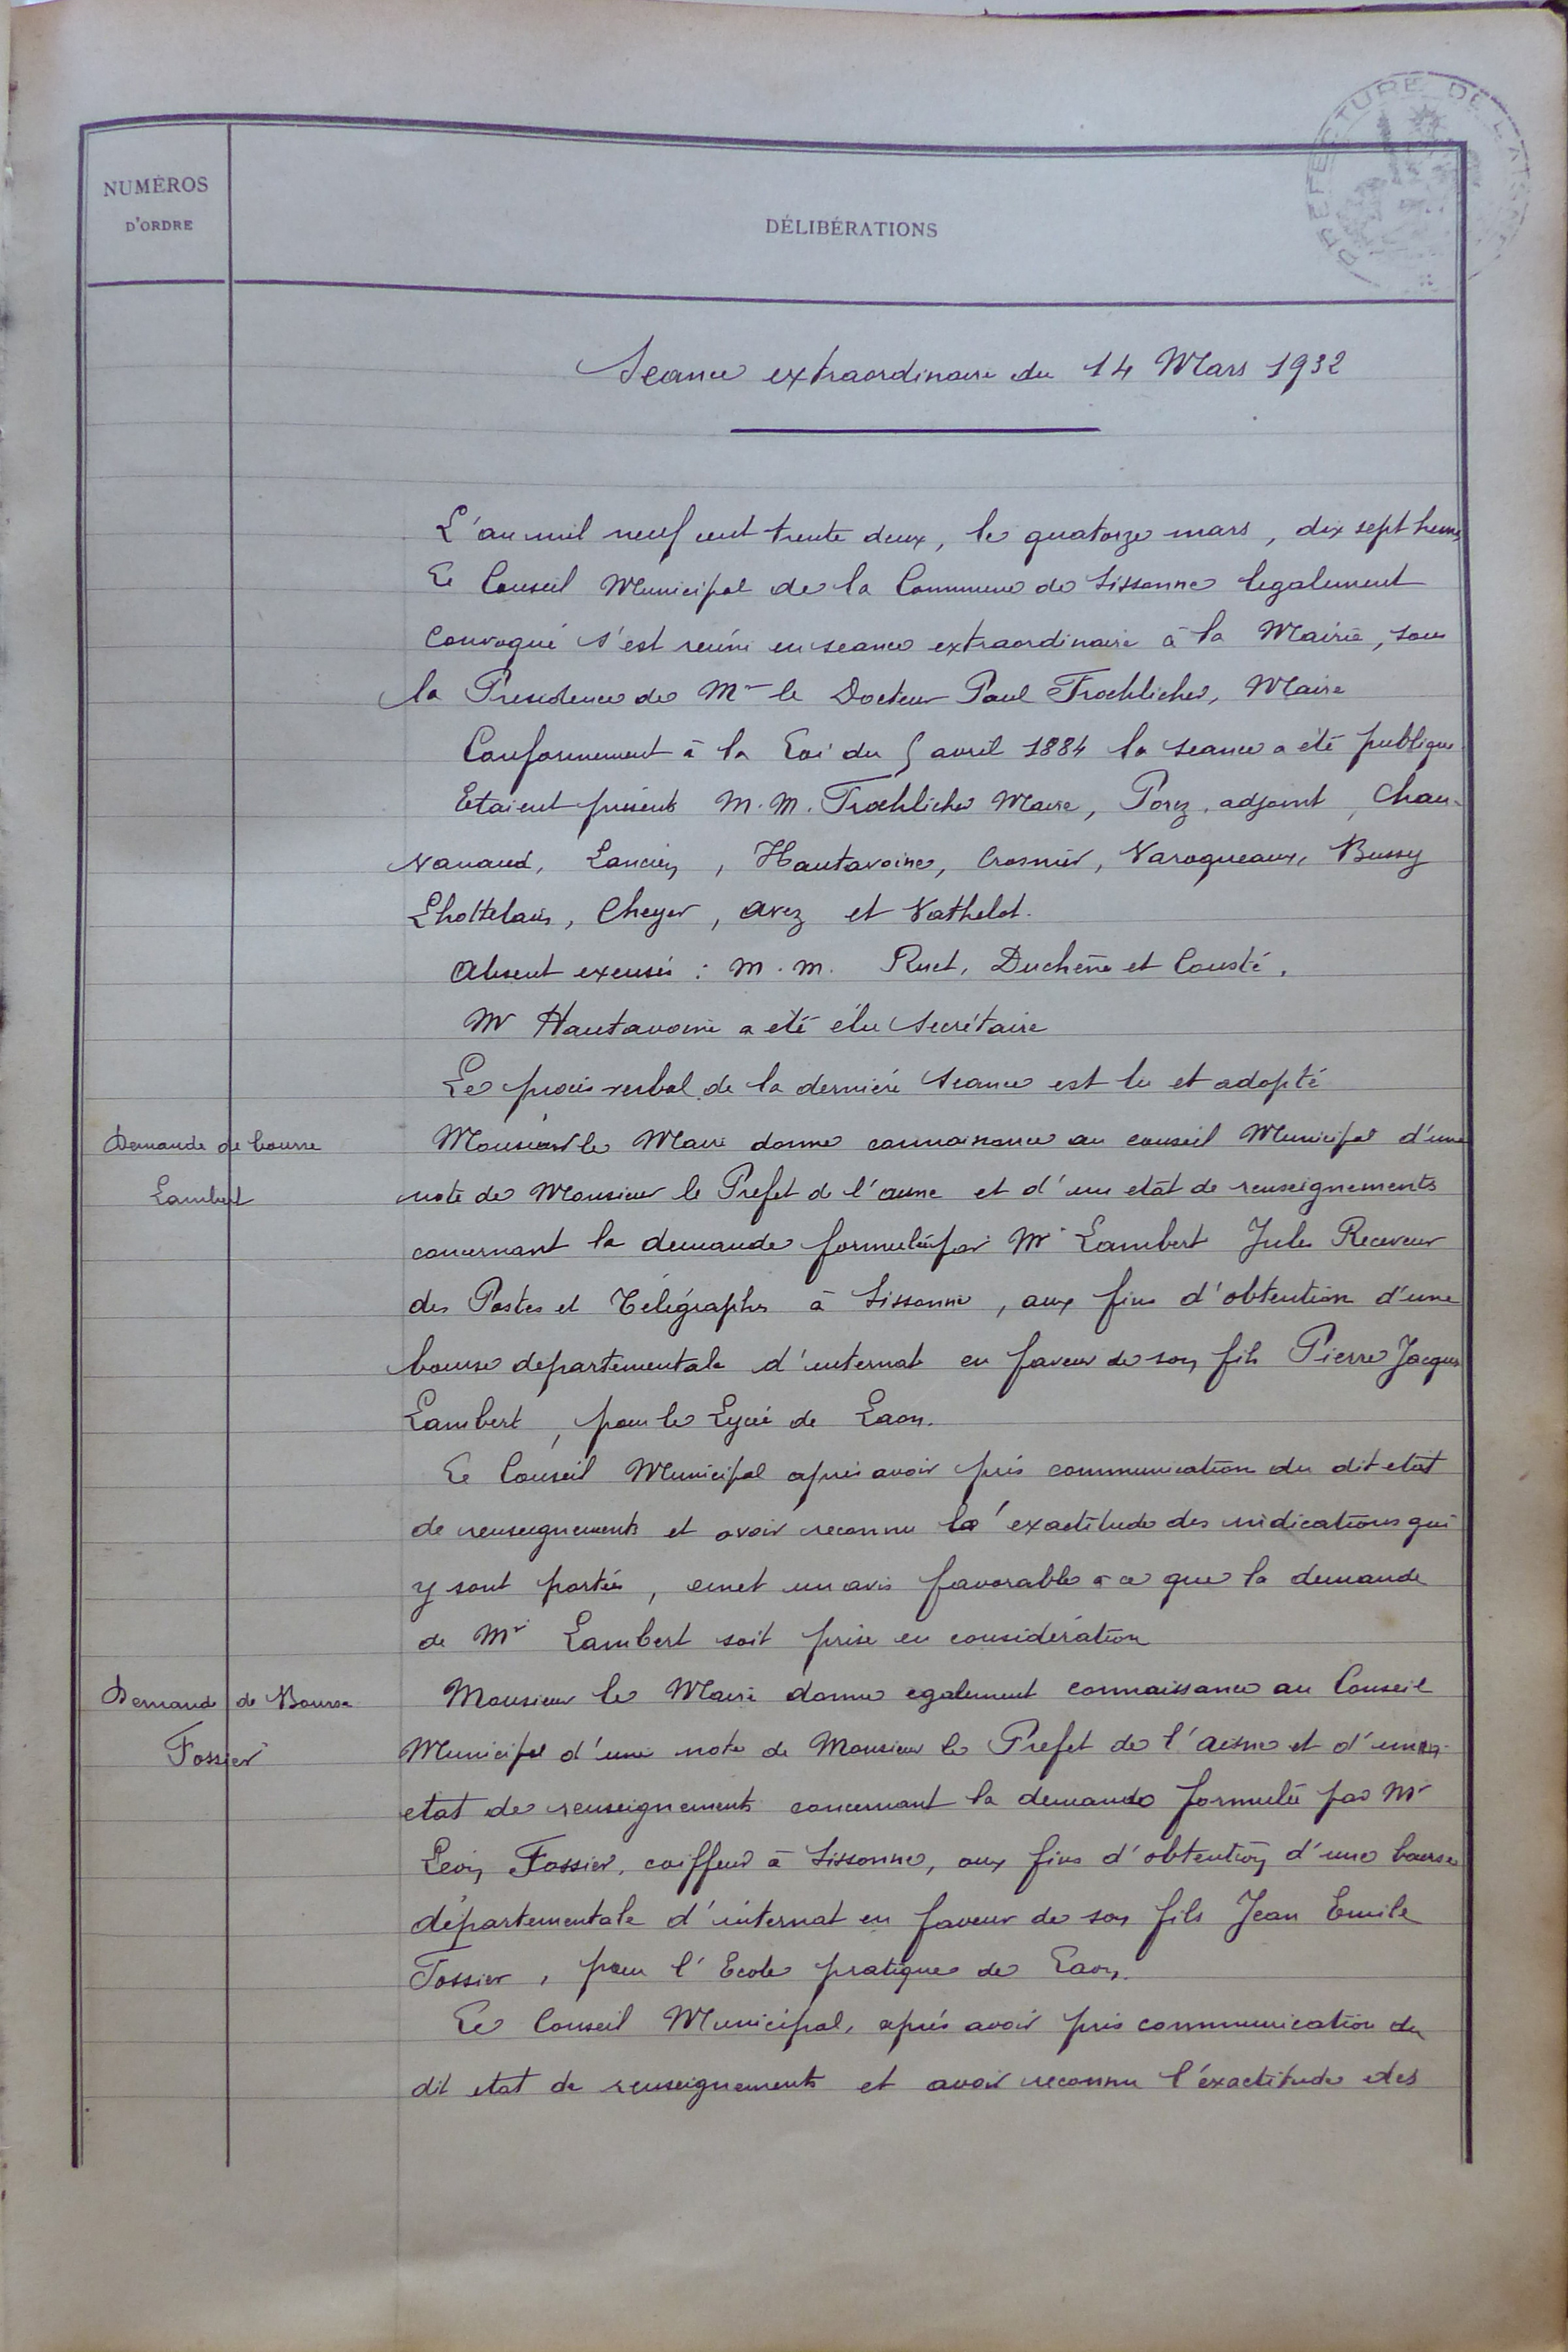 PREFECTURE DE L'AISNE
NUMÉROS
D'ORDRE
DÉLIBÉRATIONS
Seance extraordinaire du 14 Mars 1932
L'an mil neuf cent trente deux, le quatorze mars, dix sept heures
Le Conseil Municipal de la Commune de Sissonne legalement
convoqué s'est reuni en seance extraordinaire à la Mairie, sous
la Presidence de Mr le Docteur Paul Froehlicher, Maire
Conformement à la Loi du 5 avril 1884 la seance a été publique
Etaient présents M.M. Froehlicher Maire, Porez, adjoint, Chau-
vanaud, Lancien, Hautavoine, Crosnier, Varoqueaux, Bussy
Lhottelain, Cheyer, Avez et Vathelot.
Absent excusés : M.M. Ruet, Duchêne et Cousté.
Mr Hautavoine a été élu Secrétaire
Le procès verbal de la dernière seance est lu et adopté
Demande de bourse
Lambert
Monsieur le Maire donne connaissance au conseil Municipal d'une
note de Monsieur le Prefet de l'aisne et d'un etat de renseignements
concernant la demande formulée par Mr Lambert Jules Receveur
des Postes et Télégraphes à Sissonne, aux fins d'obtention d'une
bourse departementale d'internat en faveur de son fils Pierre Jacques
Lambert, pour le Lycée de Laon.
Le Conseil Municipal après avoir pris communication du dit etat
de renseignements et avoir reconnu l'exactitude des indications qui
y sont portées, emet un avis favorable à ce que la demande
de Mr Lambert soit prise en consideration
Demande de Bourse
Fossier
Monsieur le Maire donne egalement connaissance au Conseil
Municipal d'une note de Monsieur le Prefet de l'aisne et d'un
etat de renseignements concernant la demande formulée par Mr
Leon Fossier, coiffeur à Sissonne, aux fins d'obtention d'une bourse
départementale d'internat en faveur de son fils Jean Emile
Fossier, pour l'Ecole pratique de Laon.
Le Conseil Municipal, après avoir pris communication du
dit etat de renseignements et avoir reconnu l'exactitude des